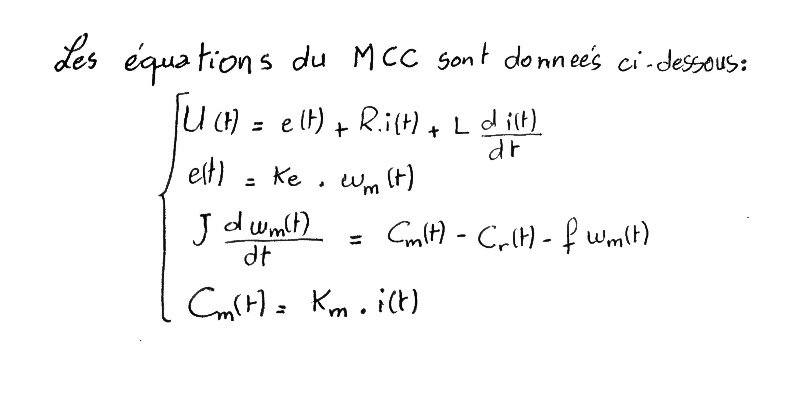 Les équations du MCC sont donneés ci-dessous:
U(t) = e(t) + R.i(t) + L d i(t)/dt
e(t) = Ke . ωm(t)
J d ωm(t)/dt = Cm(t) - Cr(t) - f ωm(t)
Cm(t) = Km . i(t)